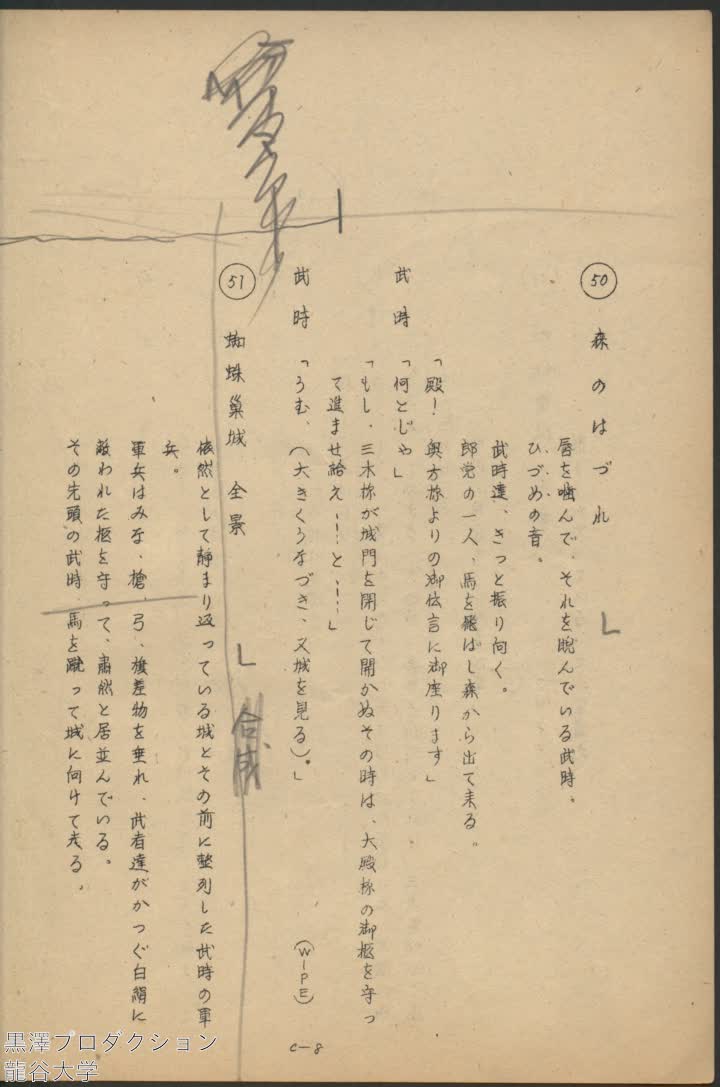 50 森のはづれ
L
唇を噛んで、それを睨んでいる武時。
ひづめの音。
武時達、きっと振り向く。
郎党の一人、馬を飛ばし森から出て来る。
「殿！ 奥方様よりの御伝言に御座ります」
武時「何とじゃ」
「もし、三木様が城門を閉じて開かぬその時は、大殿様の御柩を守っ
て進ませ給え……と……」
武時「うむ、（大きくうなづき、又城を見る）。」
（WIPE）
51 蜘蛛巣城 全景
L 合成
依然として静まり返っている城とその前に整列した武時の軍
兵。
軍兵はみな、槍、弓、旗差物を垂れ、武者達がかつぐ白絹に
敝われた柩を守って、粛然と居並んでいる。
その先頭の武時、馬を蹴って城に向けて走る。
C-8
黒澤プロダクション
龍谷大学